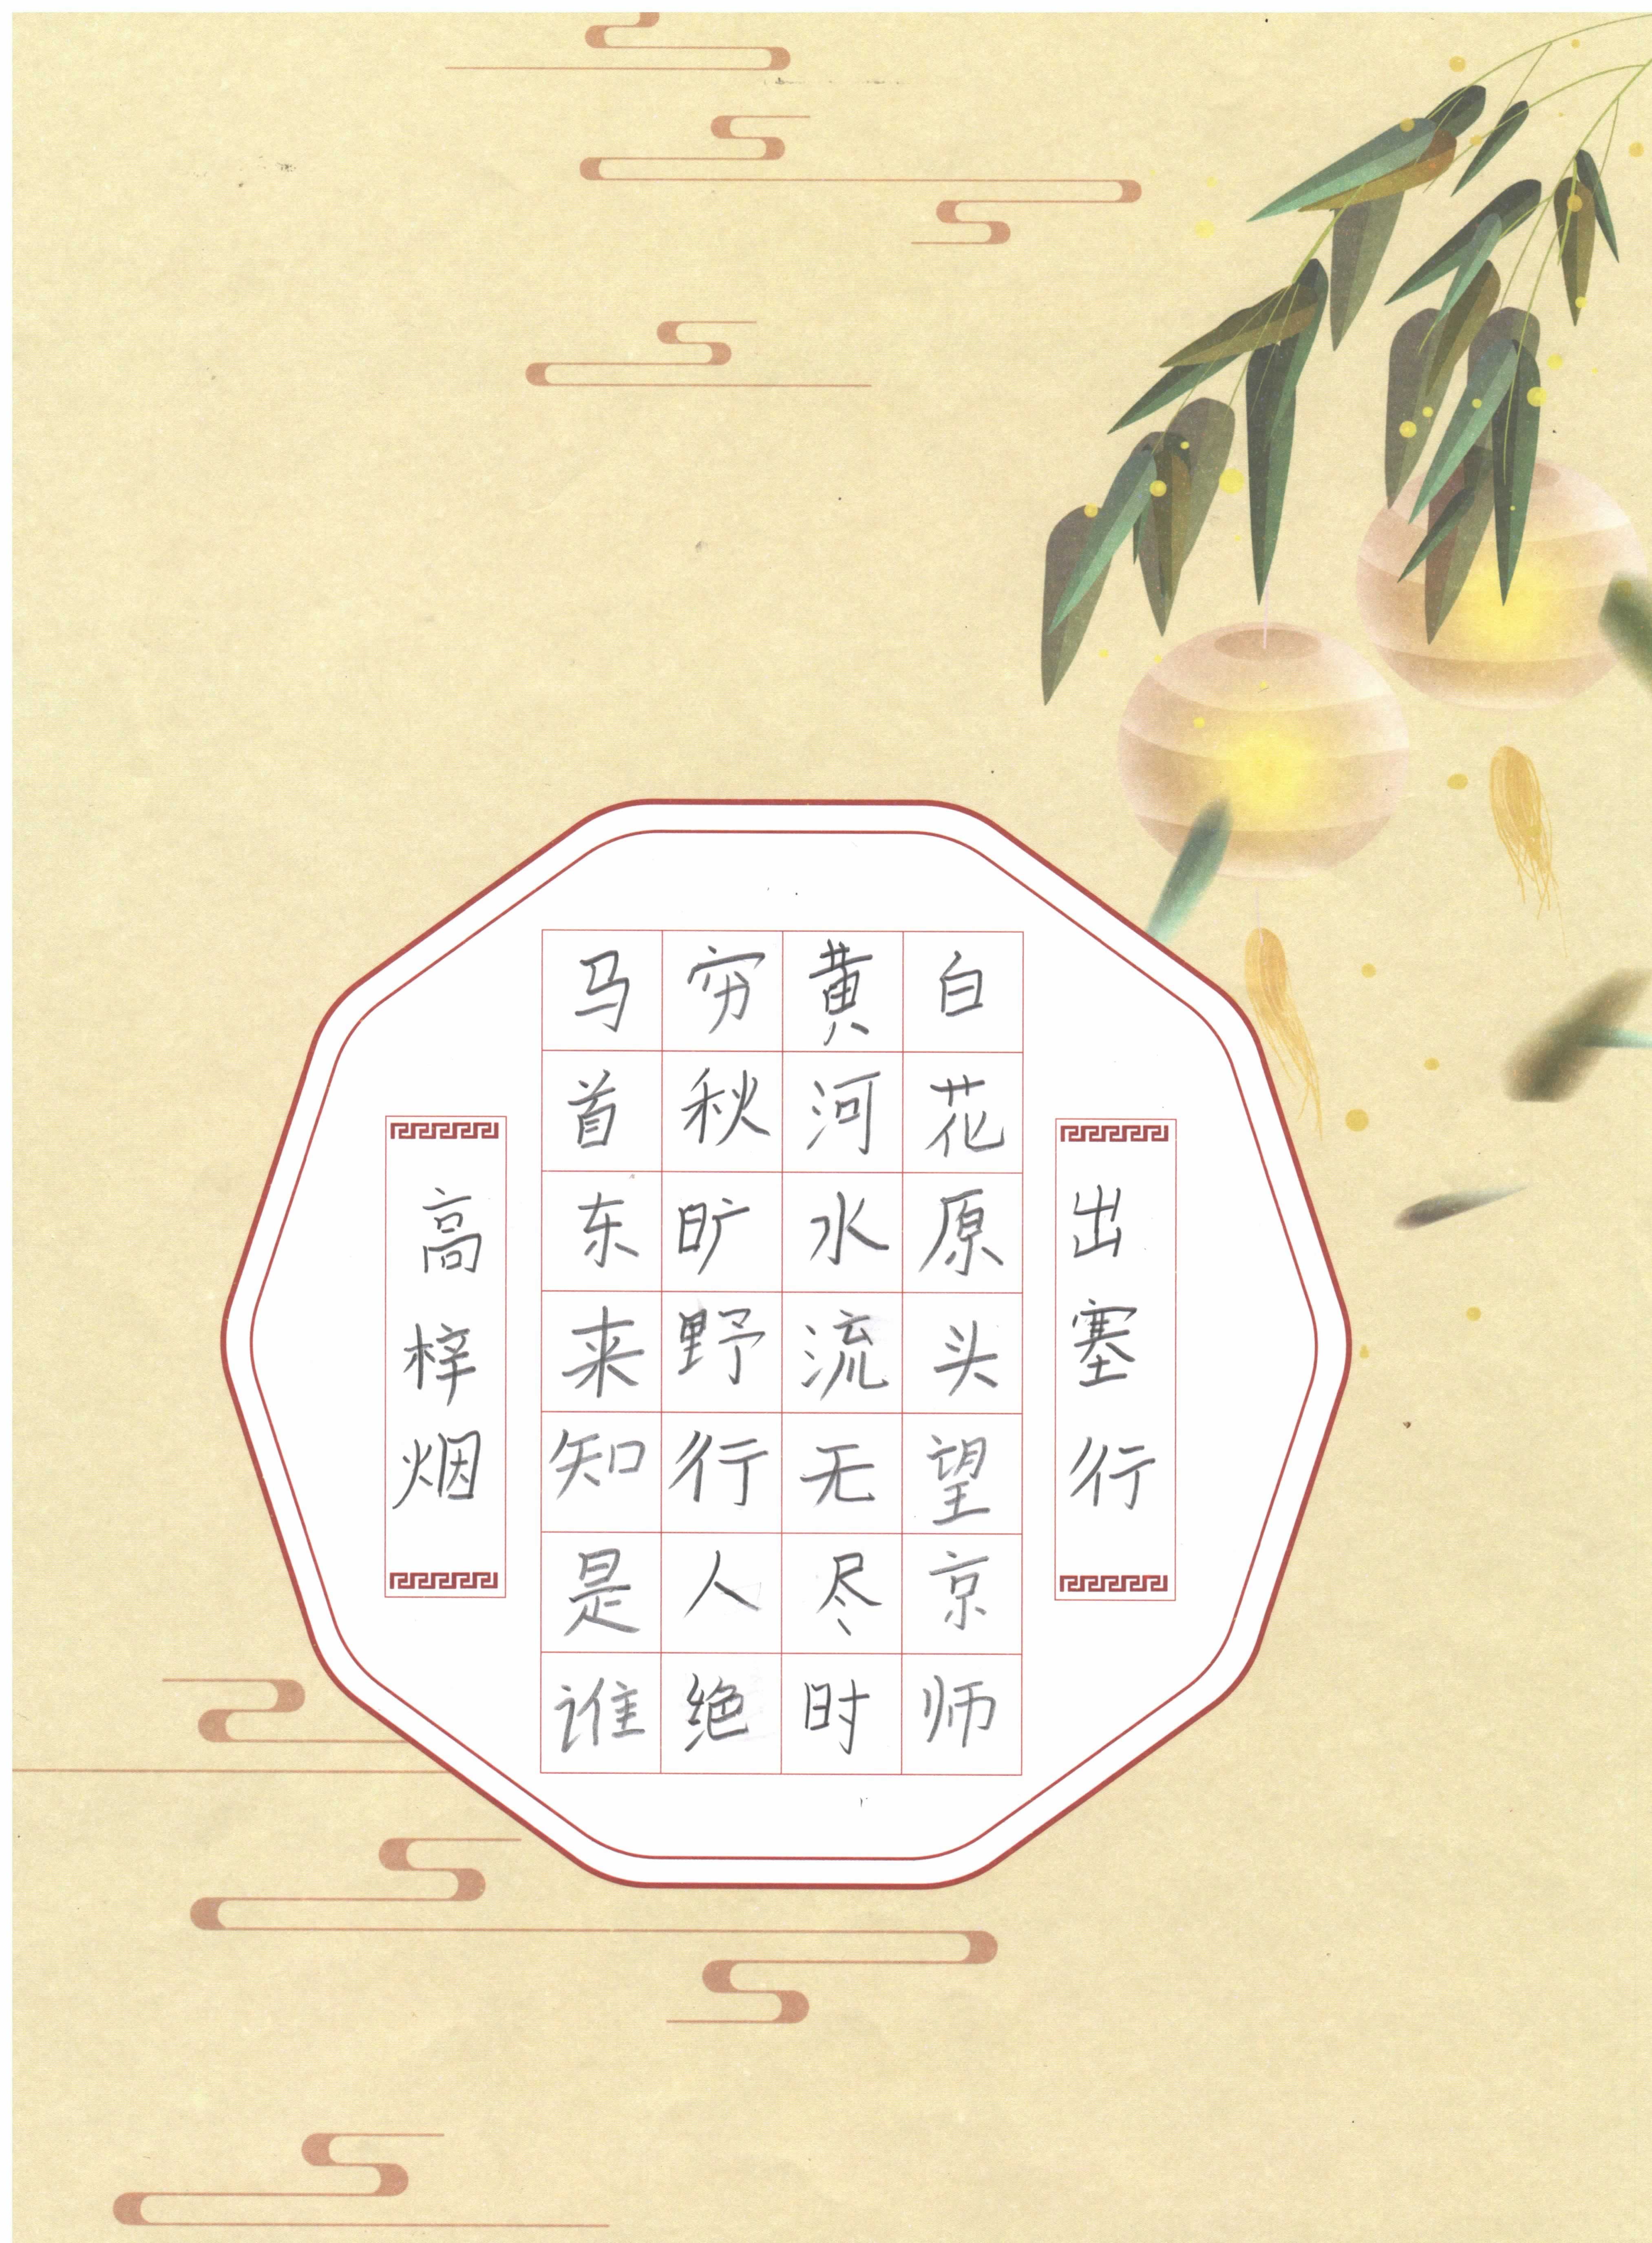 出塞行
白花原头望京师
黄河水流无尽时
穷秋旷野行人绝
马首东来知是谁
高梓烟